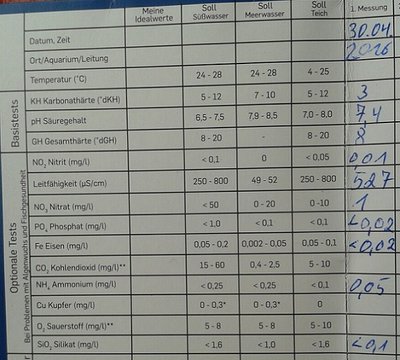 Meine Idealwerte Soll Süßwasser Soll Meerwasser Soll Teich 1. Messung
Datum, Zeit 30.04. 2016
Ort/Aquarium/Leitung
Temperatur (°C) 24 - 28 24 - 28 4 - 25
Basistests
KH Karbonathärte (°dKH) 5 - 12 7 - 10 5 - 12 3
pH Säuregehalt 6,5 - 7,5 7,9 - 8,5 7,0 - 8,0 7,4
GH Gesamthärte (°dGH) 8 - 20 - 8 - 20 8
Optionale Tests
Bei Problemen mit Algenwuchs und Fischgesundheit
NO₂ Nitrit (mg/l) < 0,1 0 < 0,05 0,01
Leitfähigkeit (µS/cm) 250 - 800 49 - 52 250 - 800 527
NO₃ Nitrat (mg/l) < 50 0 - 20 0 - 10 1
PO₄ Phosphat (mg/l) < 1,0 < 0,1 < 0,1 <0,02
Fe Eisen (mg/l) 0,05 - 0,2 0,002 - 0,05 0,05 - 0,1 <0,02
CO₂ Kohlendioxid (mg/l)** 15 - 60 0,4 - 2,5 5 - 10
NH₄ Ammonium (mg/l) < 0,25 < 0,1 < 0,25 0,05
Cu Kupfer (mg/l) 0 - 0,3* 0 - 0,3* 0
O₂ Sauerstoff (mg/l)** 5 - 8 5 - 8 5 - 10
SiO₂ Silikat (mg/l) < 1,6 < 1,0 < 1,6 <0,1